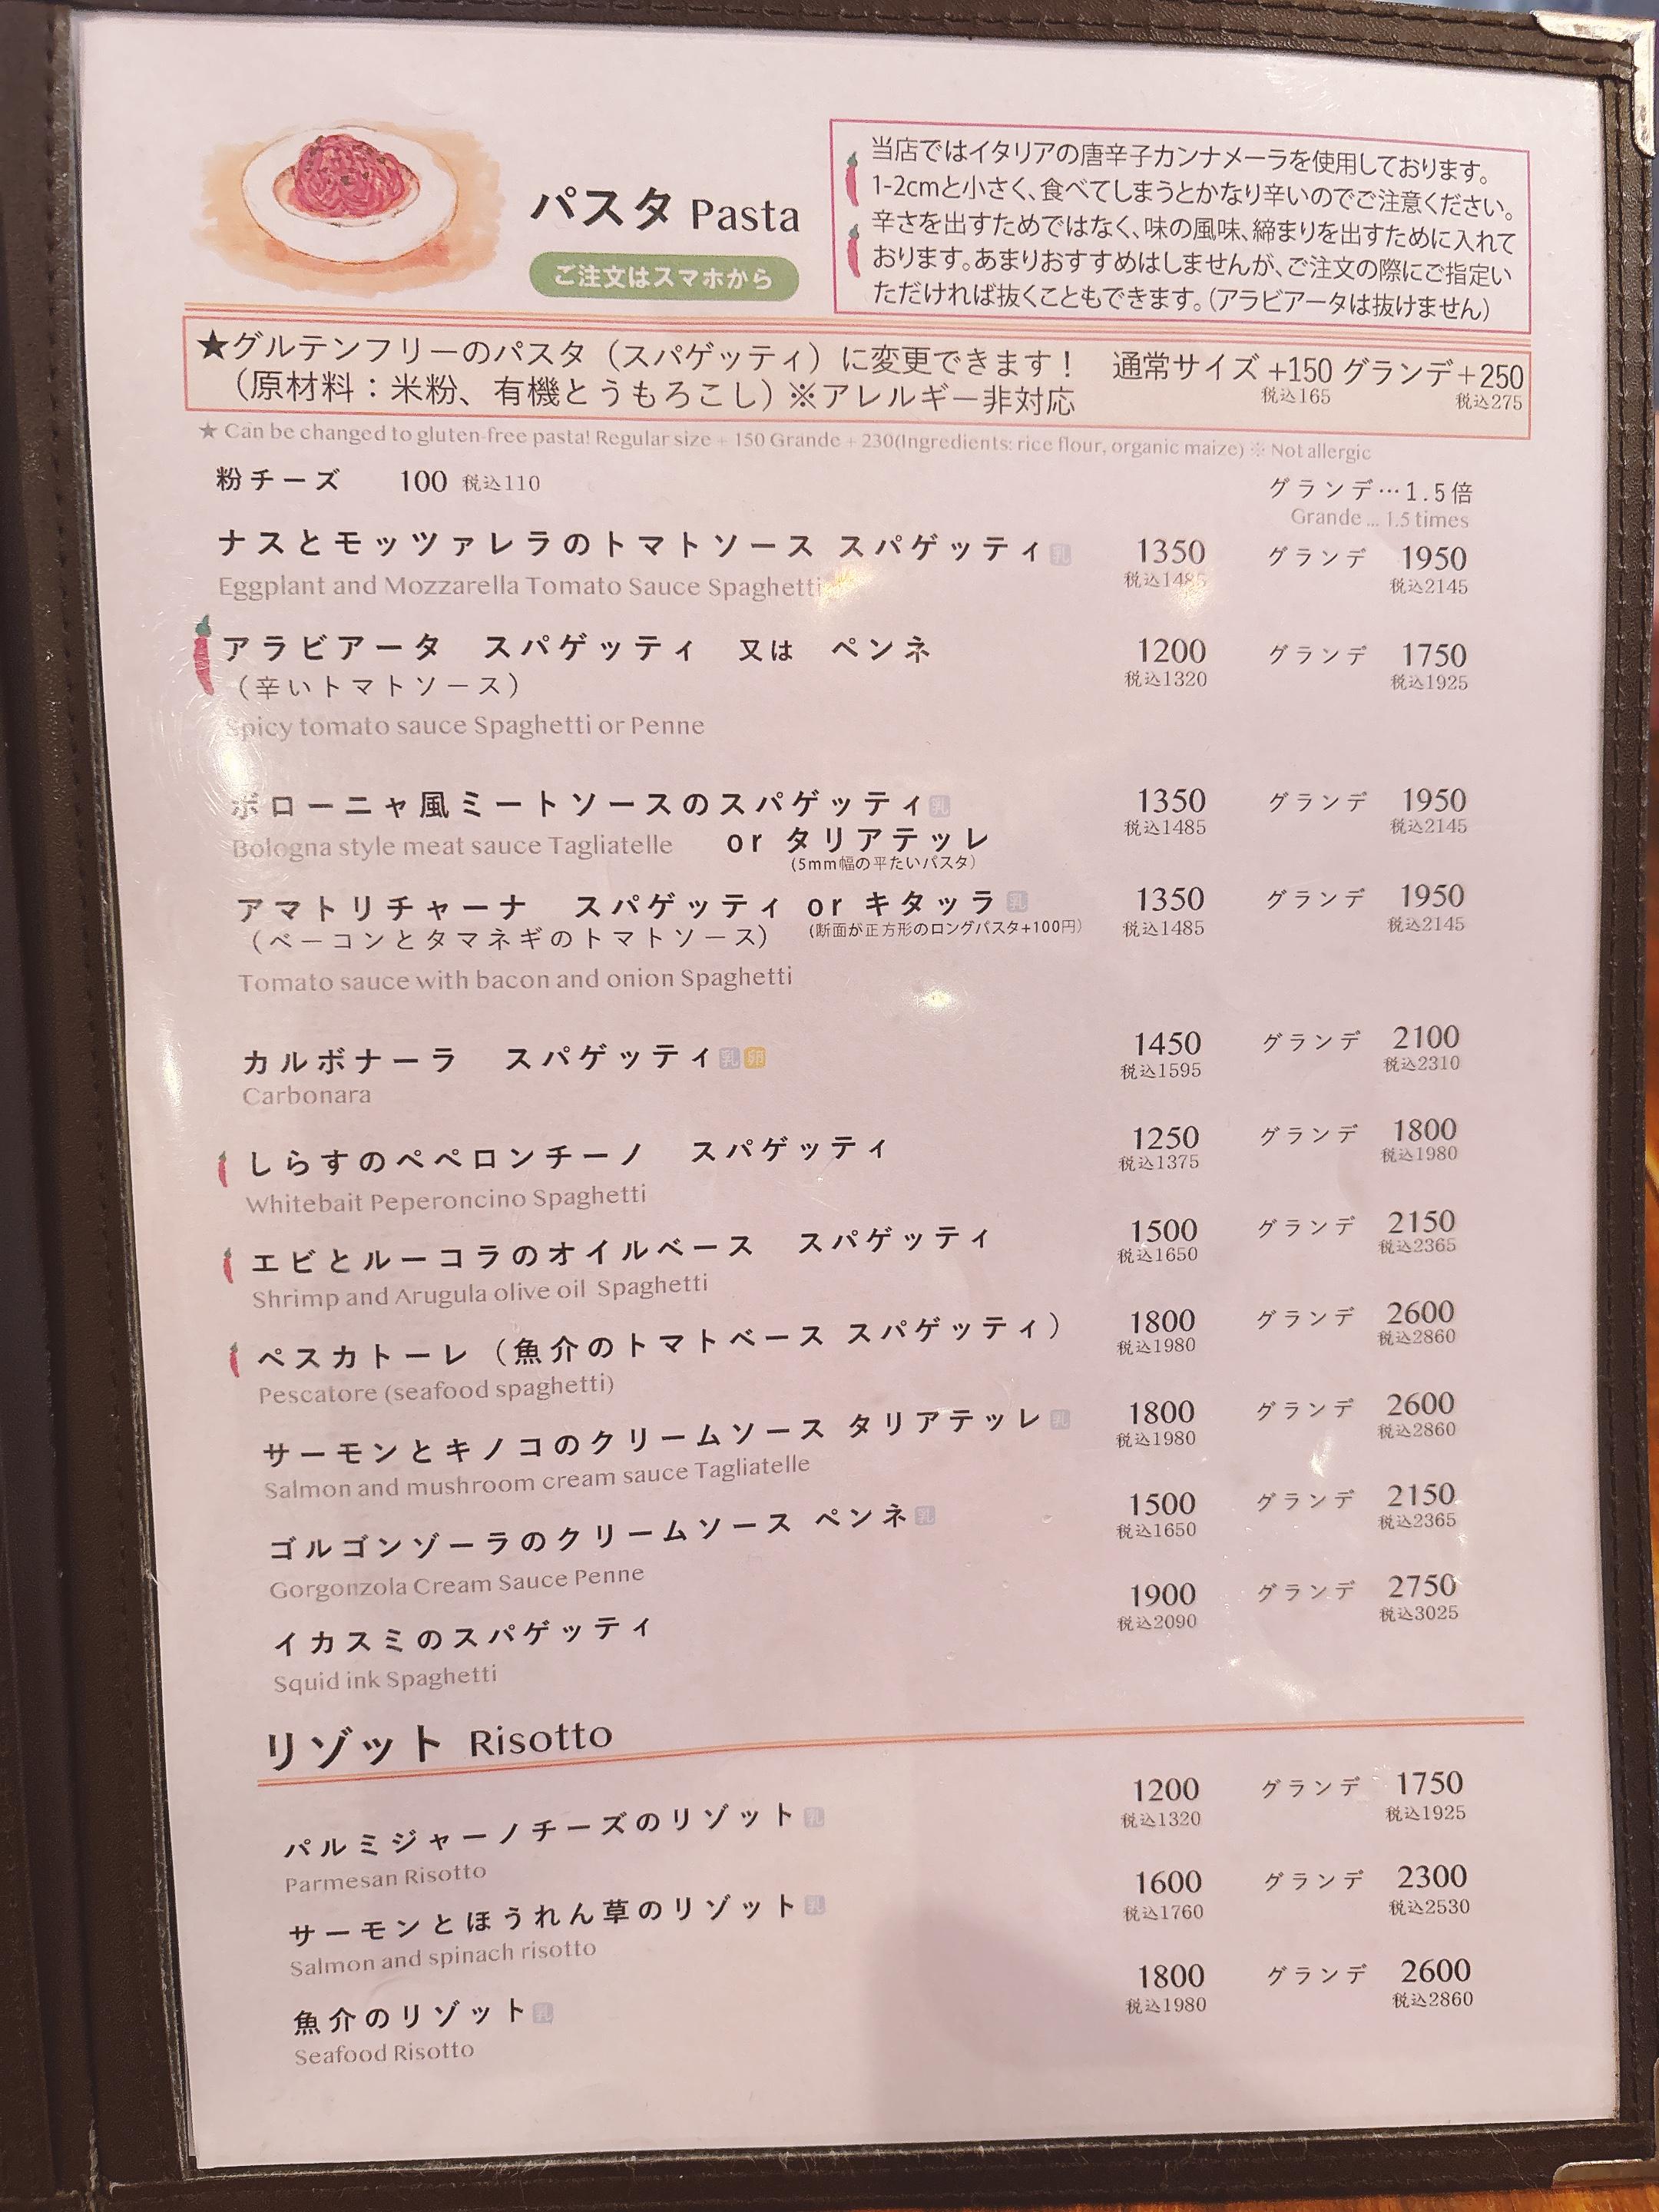 パスタ Pasta
ご注文はスマホから
当店ではイタリアの唐辛子カンナメーラを使用しております。
1-2cmと小さく、食べてしまうとかなり辛いのでご注意ください。
辛さを出すためではなく、味の風味、締まりを出すために入れて
おります。あまりおすすめはしませんが、ご注文の際にご指定い
ただければ抜くこともできます。(アラビアータは抜けません)
★グルテンフリーのパスタ(スパゲッティ)に変更できます! 通常サイズ +150 グランデ+250
(原材料:米粉、有機とうもろこし)※アレルギー非対応 税込165 税込275
★ Can be changed to gluten-free pasta! Regular size + 150 Grande + 230(Ingredients: rice flour, organic maize) ※ Not allergic
粉チーズ 100 税込110
グランデ…1.5倍
Grande ... 1.5 times
ナスとモッツァレラのトマトソース スパゲッティ 乳 1350 グランデ 1950
Eggplant and Mozzarella Tomato Sauce Spaghetti 税込1485 税込2145
アラビアータ スパゲッティ 又は ペンネ 1200 グランデ 1750
(辛いトマトソース) 税込1320 税込1925
Spicy tomato sauce Spaghetti or Penne
ボローニャ風ミートソースのスパゲッティ 乳 1350 グランデ 1950
Bologna style meat sauce Tagliatelle or タリアテッレ 税込1485 税込2145
(5mm幅の平たいパスタ)
アマトリチャーナ スパゲッティ or キタッラ 乳 1350 グランデ 1950
(ベーコンとタマネギのトマトソース) (断面が正方形のロングパスタ+100円) 税込1485 税込2145
Tomato sauce with bacon and onion Spaghetti
カルボナーラ スパゲッティ 乳 卵 1450 グランデ 2100
Carbonara 税込1595 税込2310
しらすのペペロンチーノ スパゲッティ 1250 グランデ 1800
Whitebait Peperoncino Spaghetti 税込1375 税込1980
エビとルーコラのオイルベース スパゲッティ 1500 グランデ 2150
Shrimp and Arugula olive oil Spaghetti 税込1650 税込2365
ペスカトーレ(魚介のトマトベース スパゲッティ) 1800 グランデ 2600
Pescatore (seafood spaghetti) 税込1980 税込2860
サーモンとキノコのクリームソース タリアテッレ 乳 1800 グランデ 2600
Salmon and mushroom cream sauce Tagliatelle 税込1980 税込2860
ゴルゴンゾーラのクリームソース ペンネ 乳 1500 グランデ 2150
Gorgonzola Cream Sauce Penne 税込1650 税込2365
イカスミのスパゲッティ 1900 グランデ 2750
Squid ink Spaghetti 税込2090 税込3025
リゾット Risotto
パルミジャーノチーズのリゾット 乳 1200 グランデ 1750
Parmesan Risotto 税込1320 税込1925
サーモンとほうれん草のリゾット 乳 1600 グランデ 2300
Salmon and spinach risotto 税込1760 税込2530
魚介のリゾット 乳 1800 グランデ 2600
Seafood Risotto 税込1980 税込2860